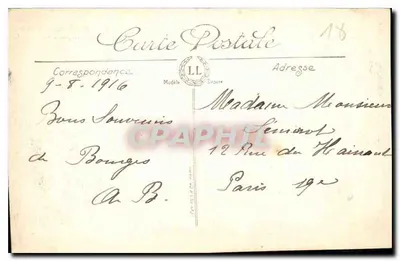 18
Carte Postale
Correspondance
LL
Adresse
9-8-1916
Bons Souvenirs
de Bourges
A B.
Madame Monsieur
12 Rue du Hainaut
Paris 19e
CPAPHIL